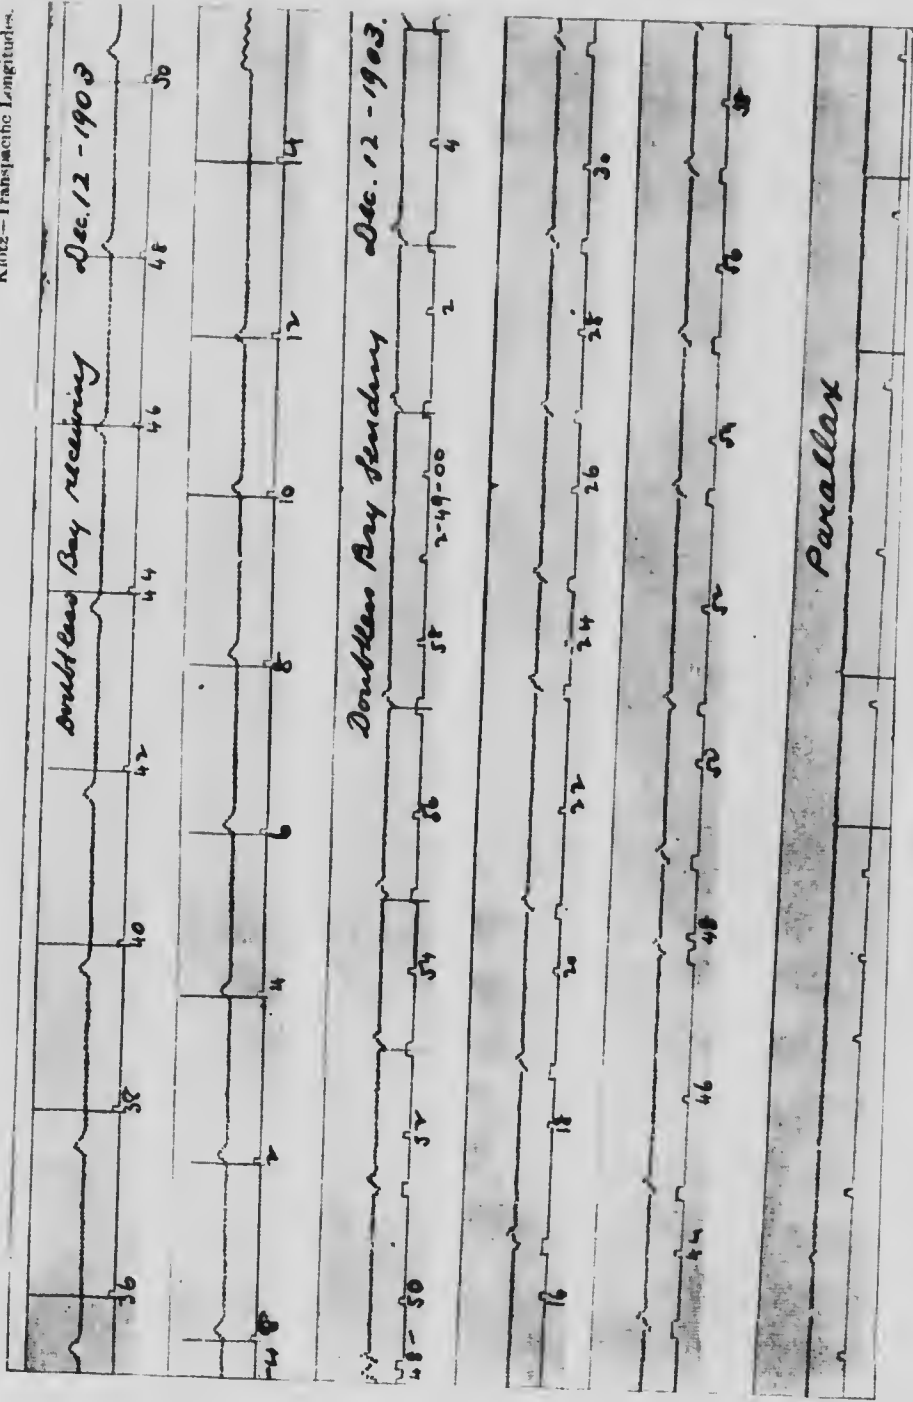 Klotz—Transpacific Longitudes.
Doubtless Bay receiving Dec. 12 - 1903
36 38 40 42 44 46 48 50
2 4 6 8 10 12 14
Doubtless Bay Sending Dec. 12 - 1903.
48- 50 52 54 56 58 2-49-00 2 4
16 18 20 22 24 26 28 30
44 46 48 50 52 54 56 58
Parallax